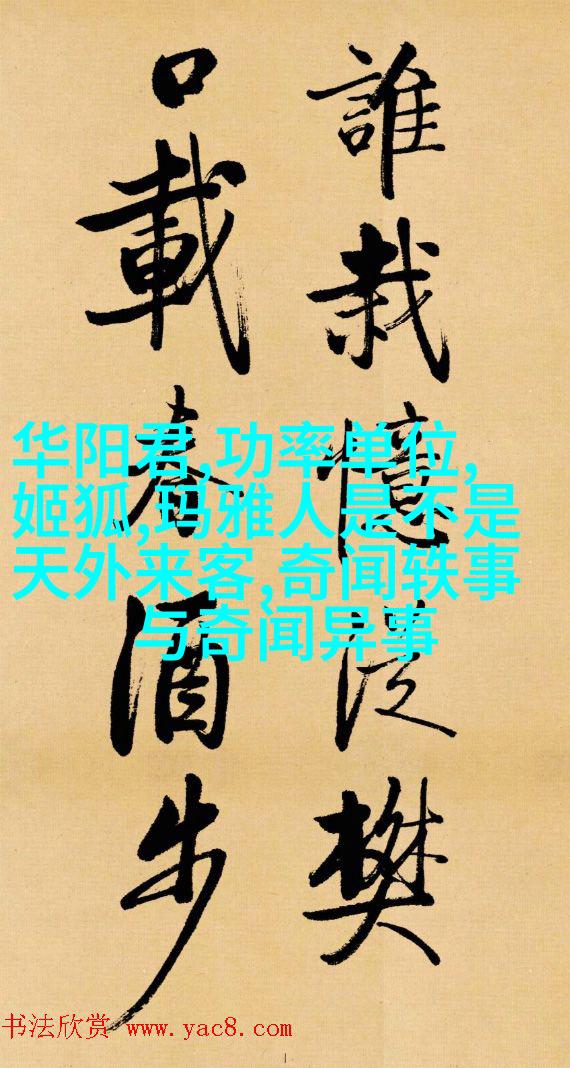 誰栽憶泛樊
口載春酒步
华阳君,功率单位,
姬狐,玛雅人是不是
天外来客,奇闻轶事
与奇闻异事
书法欣赏 www.yac8.com